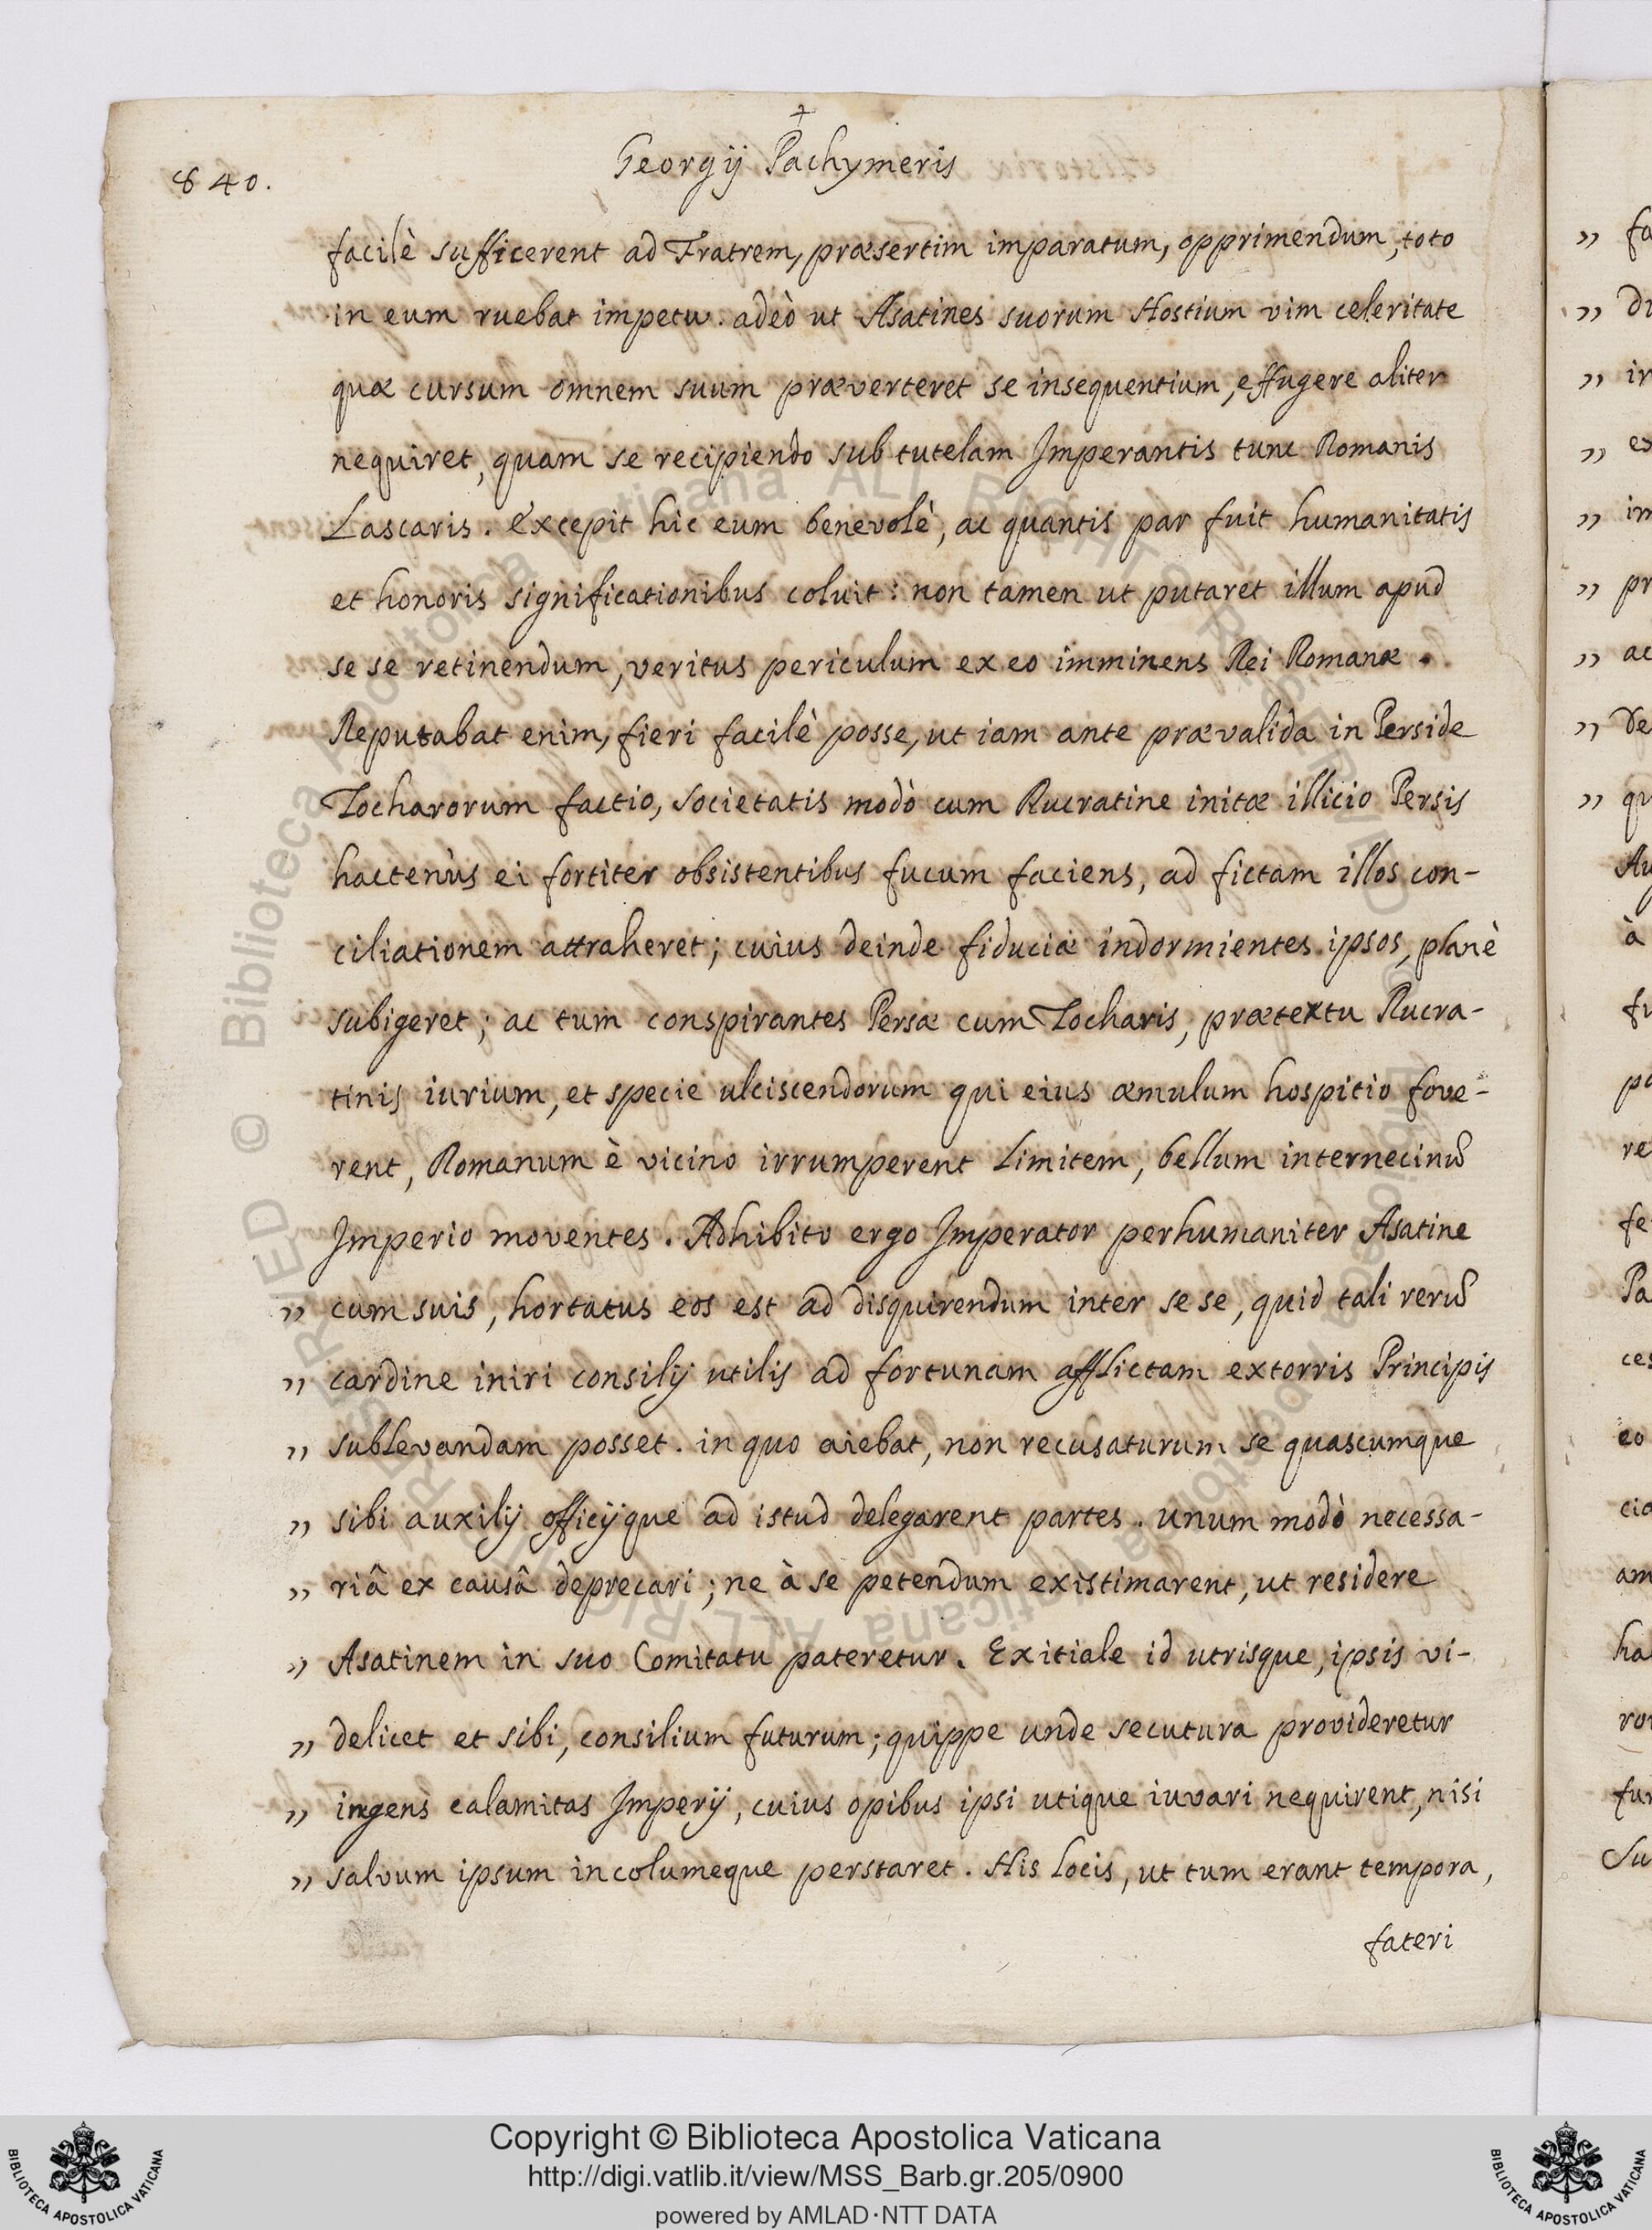 840.
Georgij Pachymeris
facilè sufficerent ad Fratrem, præsertim imparatum, opprimendum, toto
in eum ruebat impetu. adeò ut Asatines suorum Hostium vim celeritate
quæ cursum omnem suum præverteret se insequentium, effugere aliter
nequiret, quam se recipiendo sub tutelam Imperantis tunc Romanis
Lascaris. Excepit hic eum benevolè, ac quantis par fuit humanitatis
et honoris significationibus coluit: non tamen ut putaret illum apud
se se retinendum, veritus periculum ex eo imminens Rei Romanæ.
Reputabat enim, fieri facilè posse, ut iam ante prævalida in Perside
Tocharorum factio, societatis modò cum Rucratine initæ illicio Persis
hactenùs ei fortiter obsistentibus fucum faciens, ad fictam illos con-
ciliationem attraheret; cuius deinde fiduciæ indormientes ipsos, planè
subigeret; ac tum conspirantes Persæ cum Tocharis, prætextu Rucra-
tinis iurium, et specie ulciscendorum qui eius æmulum hospitio fove-
rent, Romanum è vicino irrumperent Limitem, bellum internecinũ
Imperio moventes. Adhibito ergo Imperator perhumaniter Asatine
,, cum suis, hortatus eos est ad disquirendum inter se se, quid tali rerũ
,, cardine iniri consilij utilis ad fortunam afflictam extorris Principis
,, sublevandam posset. in quo aiebat, non recusaturum se quascumque
,, sibi auxilij officijque ad istud delegarent partes. unum modò necessa-
,, riâ ex causâ deprecari; ne à se petendum existimarent, ut residere
,, Asatinem in suo Comitatu pateretur. Exitiale id utrisque, ipsis vi-
,, delicet et sibi, consilium futurum; quippe unde secutura provideretur
,, ingens calamitas Imperij, cuius opibus ipsi utique iuvari nequirent, nisi
,, salvum ipsum incolumeque perstaret. His locis, ut tum erant tempora,
fateri
Copyright © Biblioteca Apostolica Vaticana
http://digi.vatlib.it/view/MSS_Barb.gr.205/0900
powered by AMLAD·NTT DATA
BIBLIOTECA APOSTOLICA VATICANA
BIBLIOTECA APOSTOLICA VATICANA